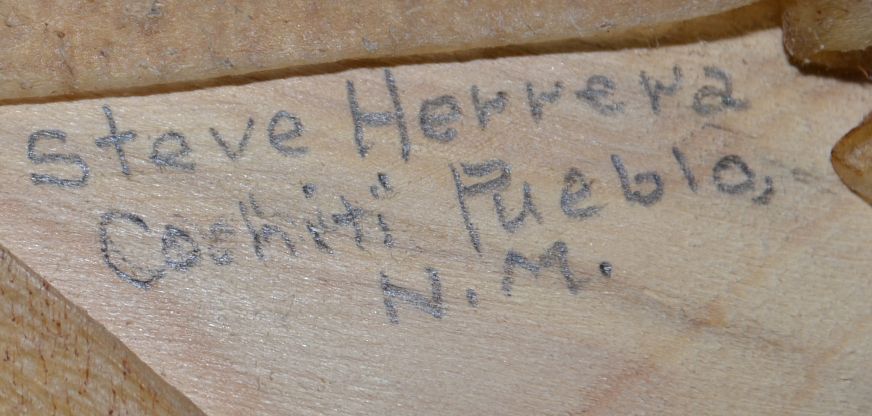 Steve Herrera
Cochiti Pueblo,
N.M.